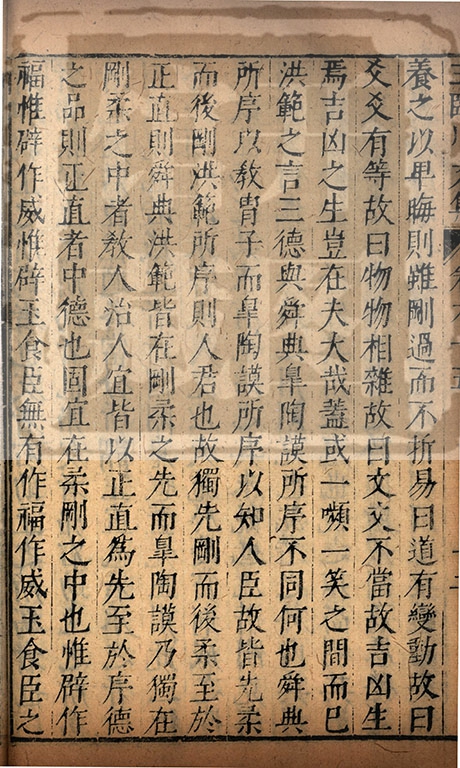 養之以卑晦則雖剛過而不折易曰道有變動故曰
爻爻有等故曰物物相雜故曰文文不當故吉凶生
焉吉凶之生豈在夫大哉蓋或一嚬一笑之間而已
洪範之言三德與舜典皐陶謨所序不同何也舜典
所序以敎胄子而皐陶謨所序以知人臣故皆先柔
而後剛洪範所序則人君也故獨先剛而後柔至於
正直則舜典洪範皆在剛柔之先而皐陶謨乃獨在
剛柔之中者敎人治人宜皆以正直爲先至於序德
之品則正直者中德也固宜在柔剛之中也惟辟作
福惟辟作威惟辟玉食臣無有作福作威玉食臣之